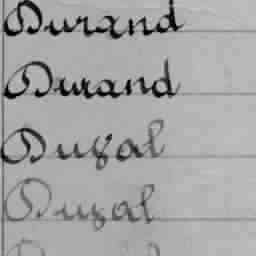 Durand
Durand
Duval
Duval